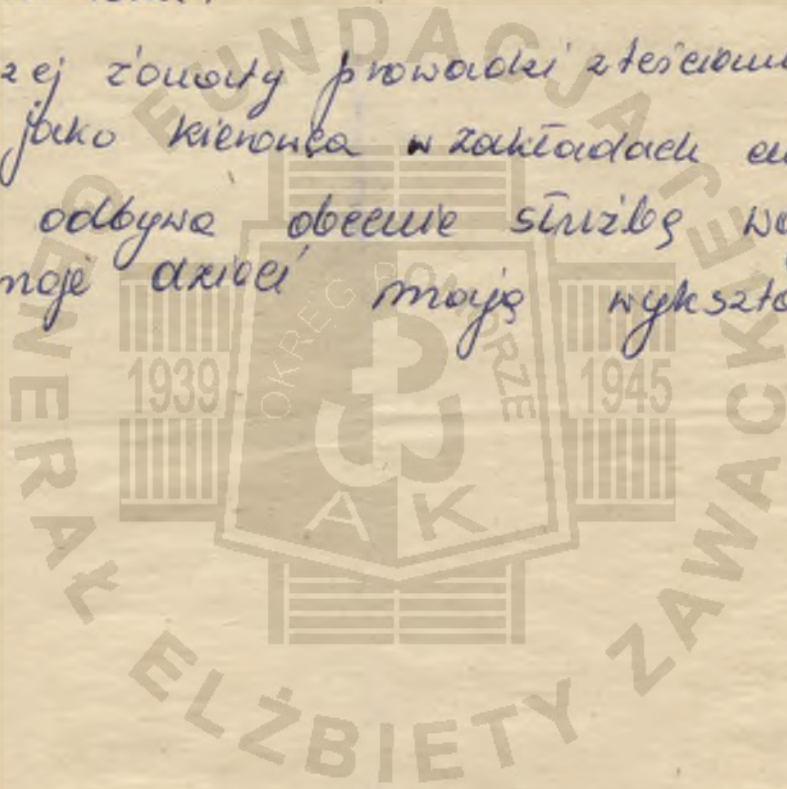 zej żonaty prowadzi z teściami
jako kierowca w zakładach
odbywa obecnie służbę
moje dzieci mają
FUNDACJA
GENERAŁ ELŻBIETY ZAWACKIEJ
OKRĘG POMORZE
1939
1945
A K